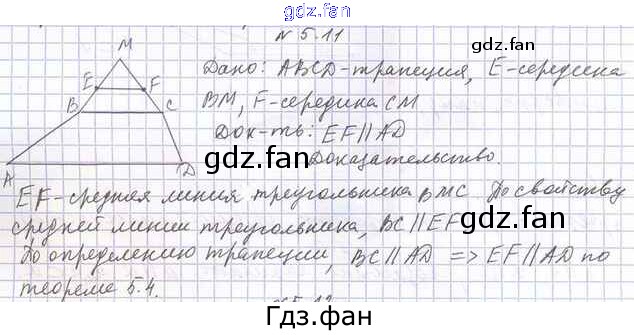 gdz.fan
N 5.11
gdz.fan
M
Дано: ABCD-трапеция, E-середина
E F
BM, F-середина CM
B C
gdz.fan
Док-ть: EF//AD
gdz.fan
Доказательство.
A D
EF-средняя линия треугольника BMC. По свойству
средней линии треугольника, BC//EF
gdz.fan
По определению трапеции, BC//AD => EF//AD по
теореме 5.4.
Гдз.фан